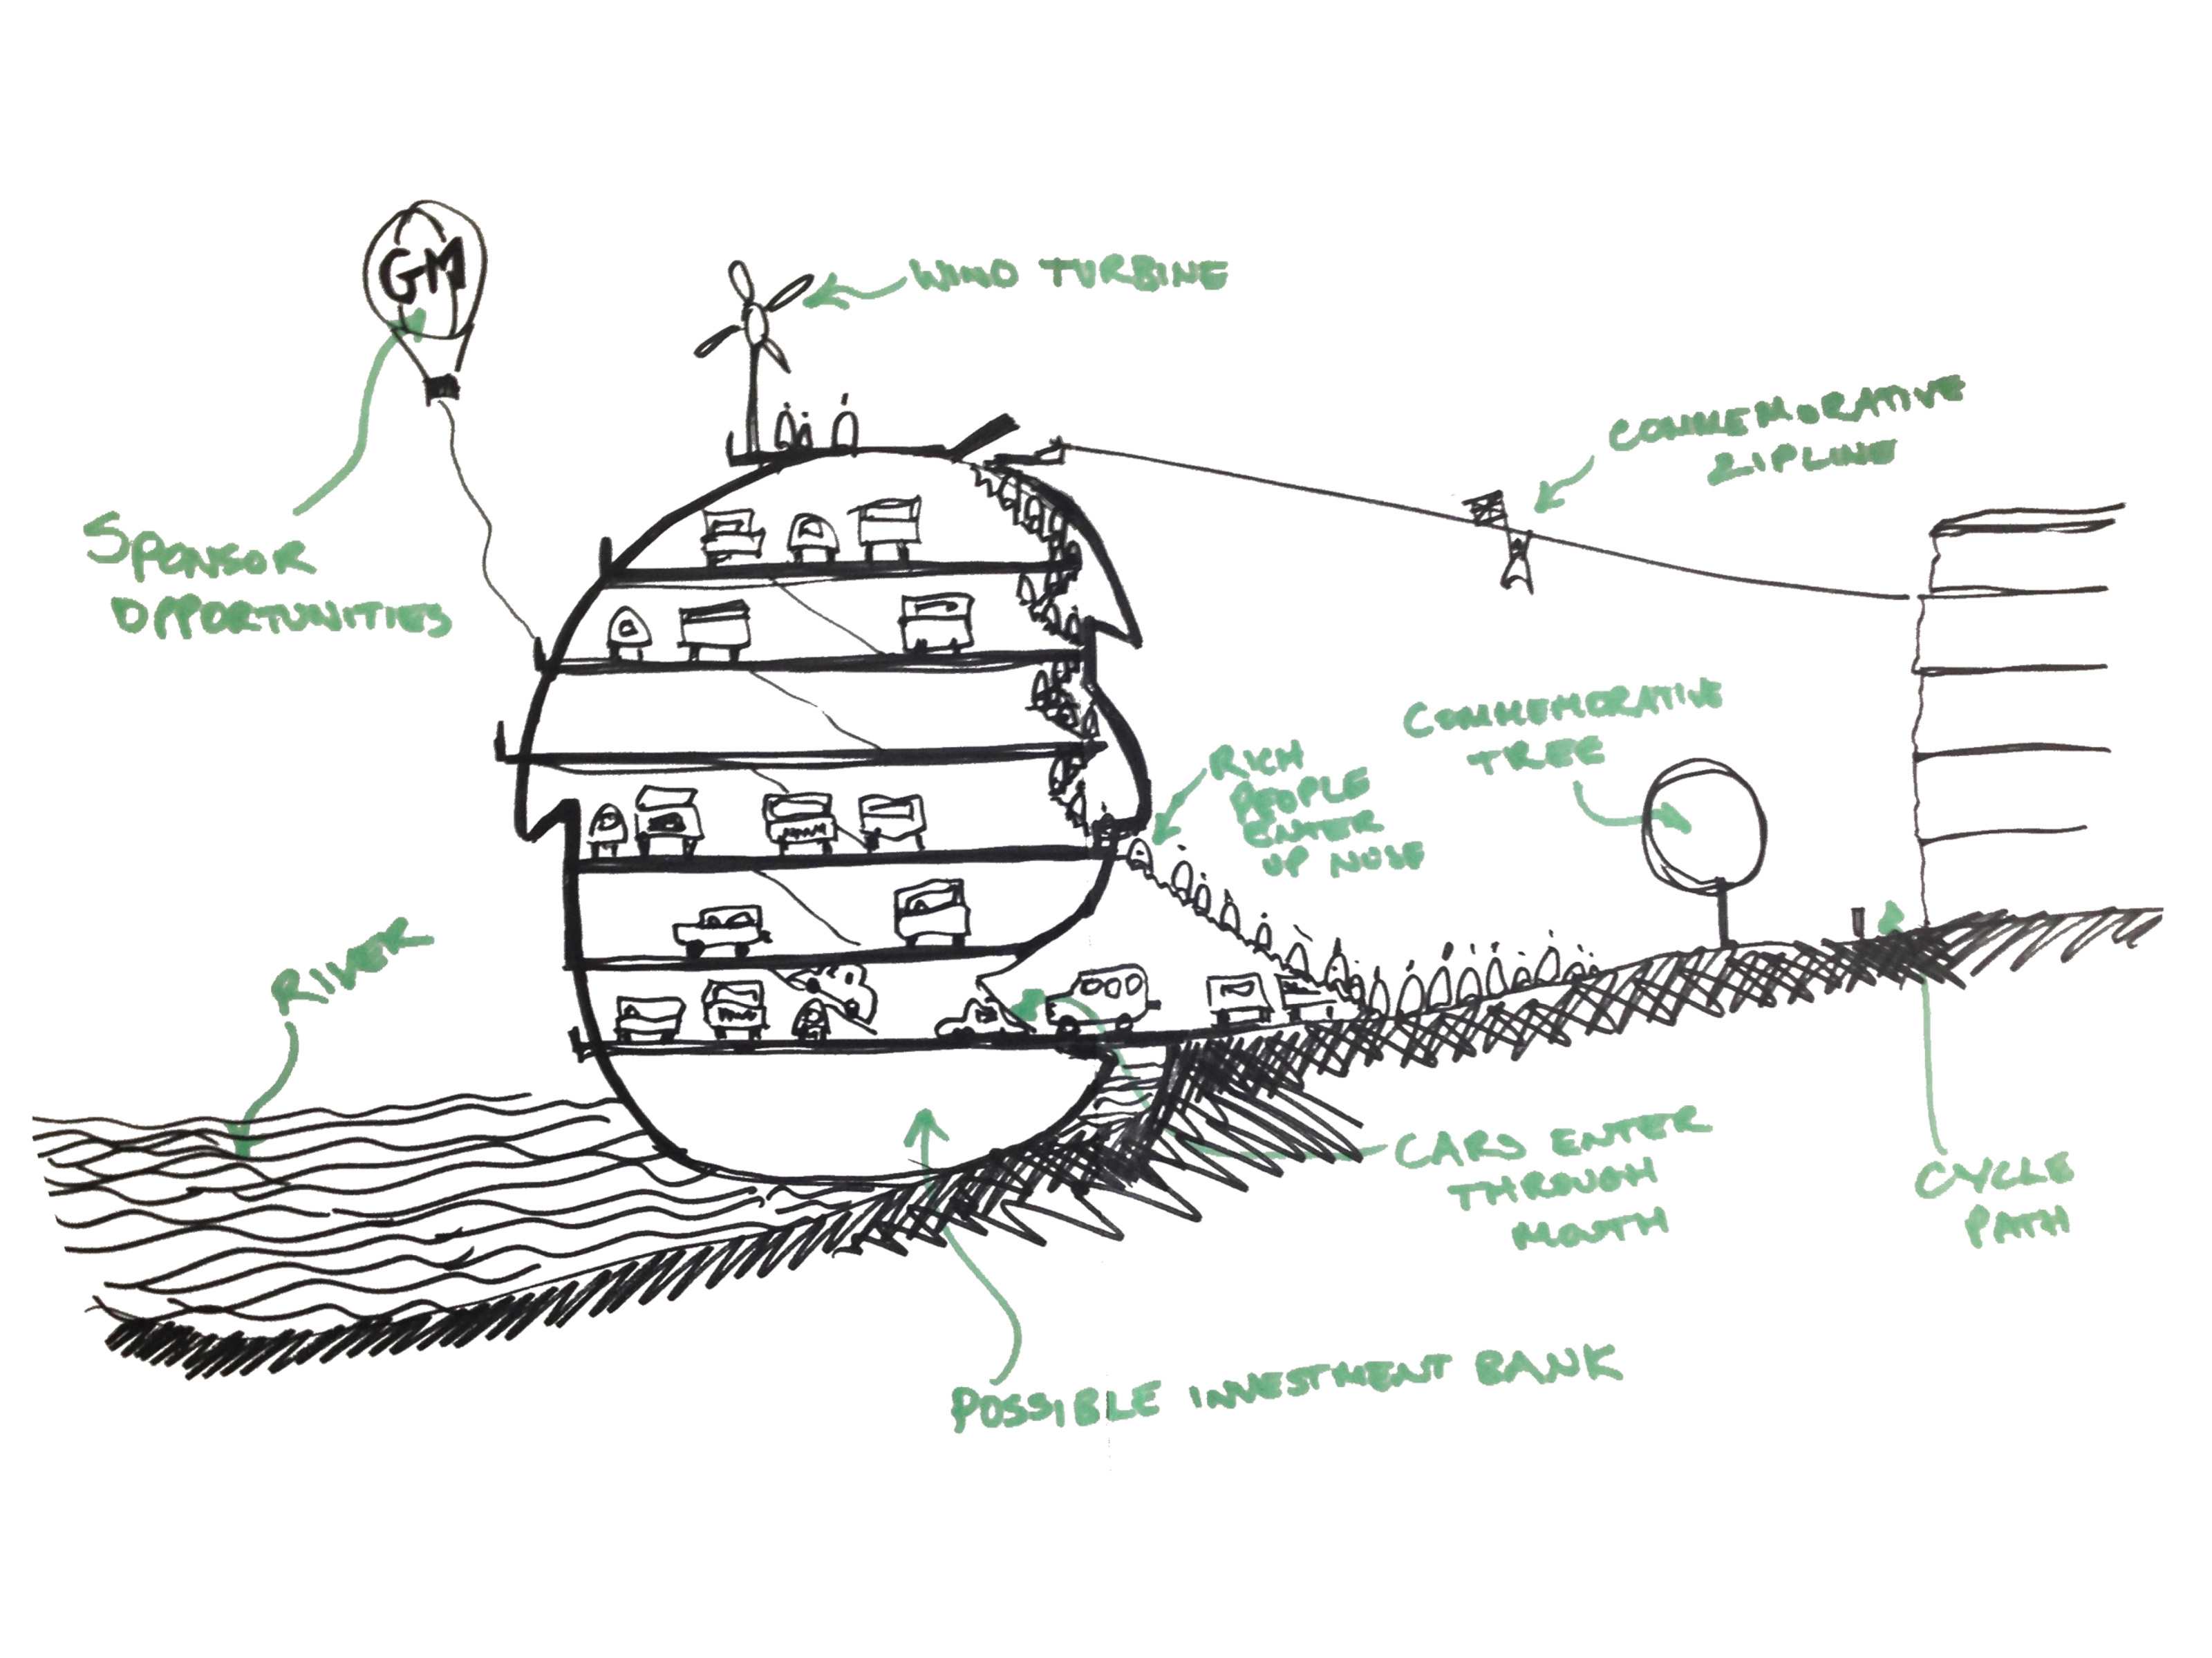 GM
WIND TURBINE
COMMEMORATIVE
ZIPLINE
SPONSOR
OPPORTUNITIES
COMMEMORATIVE
TREE
RICH
PEOPLE
ENTER
UP NOSE
RIVER
CARS ENTER
THROUGH
MOUTH
CYCLE
PATH
POSSIBLE INVESTMENT BANK